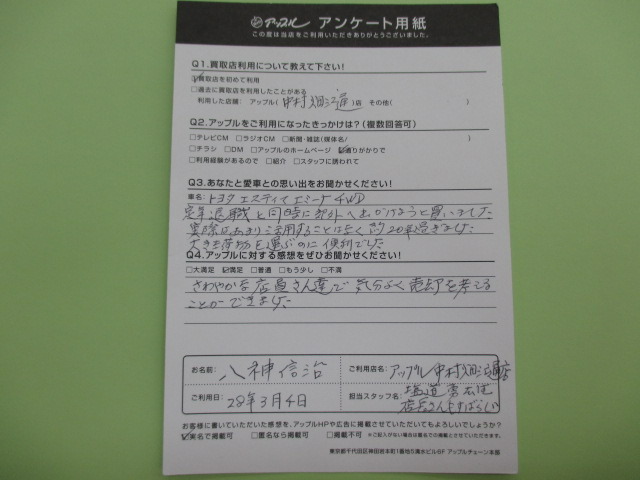 アップル アンケート用紙
この度は当店をご利用いただきありがとうございました。
Q1.買取店利用について教えて下さい!
☑買取店を初めて利用
□過去に買取店を利用したことがある
利用した店舗: アップル(中村畑江通)店 その他( )
Q2.アップルをご利用になったきっかけは?(複数回答可)
□テレビCM □ラジオCM □新聞・雑誌(媒体名/ )
□チラシ □DM □アップルのホームページ ☑通りがかりで
□利用経験があるので □紹介 □スタッフに誘われて
Q3.あなたと愛車との思い出をお聞かせください!
車名:トヨタエスティマエミーナ4WD
定年退職と同時に郊外へ出かけようと思いました
実際はあまり活用することはなく約20年過ぎました
大きな荷物を運ぶのに便利でした
Q4.アップルに対する感想をぜひお聞かせください!
□大満足 ☑満足 □普通 □もう少し □不満
さわやかな店員さん達で気分よく売却を考える
ことができました
お名前: 八神信治
ご利用店名: アップル中村畑江通店
ご利用日: 28年3月4日
担当スタッフ名:
店長さんもすばらしい
お客様に書いていただいた感想を、アップルHPや広告に掲載させていただいてもよろしいでしょうか?
☑実名で掲載可 □匿名なら掲載可 □掲載不可 ※ご記入がない場合は匿名での掲載とさせていただきます。
東京都千代田区神田岩本町1番地5清水ビル6F アップルチェーン本部